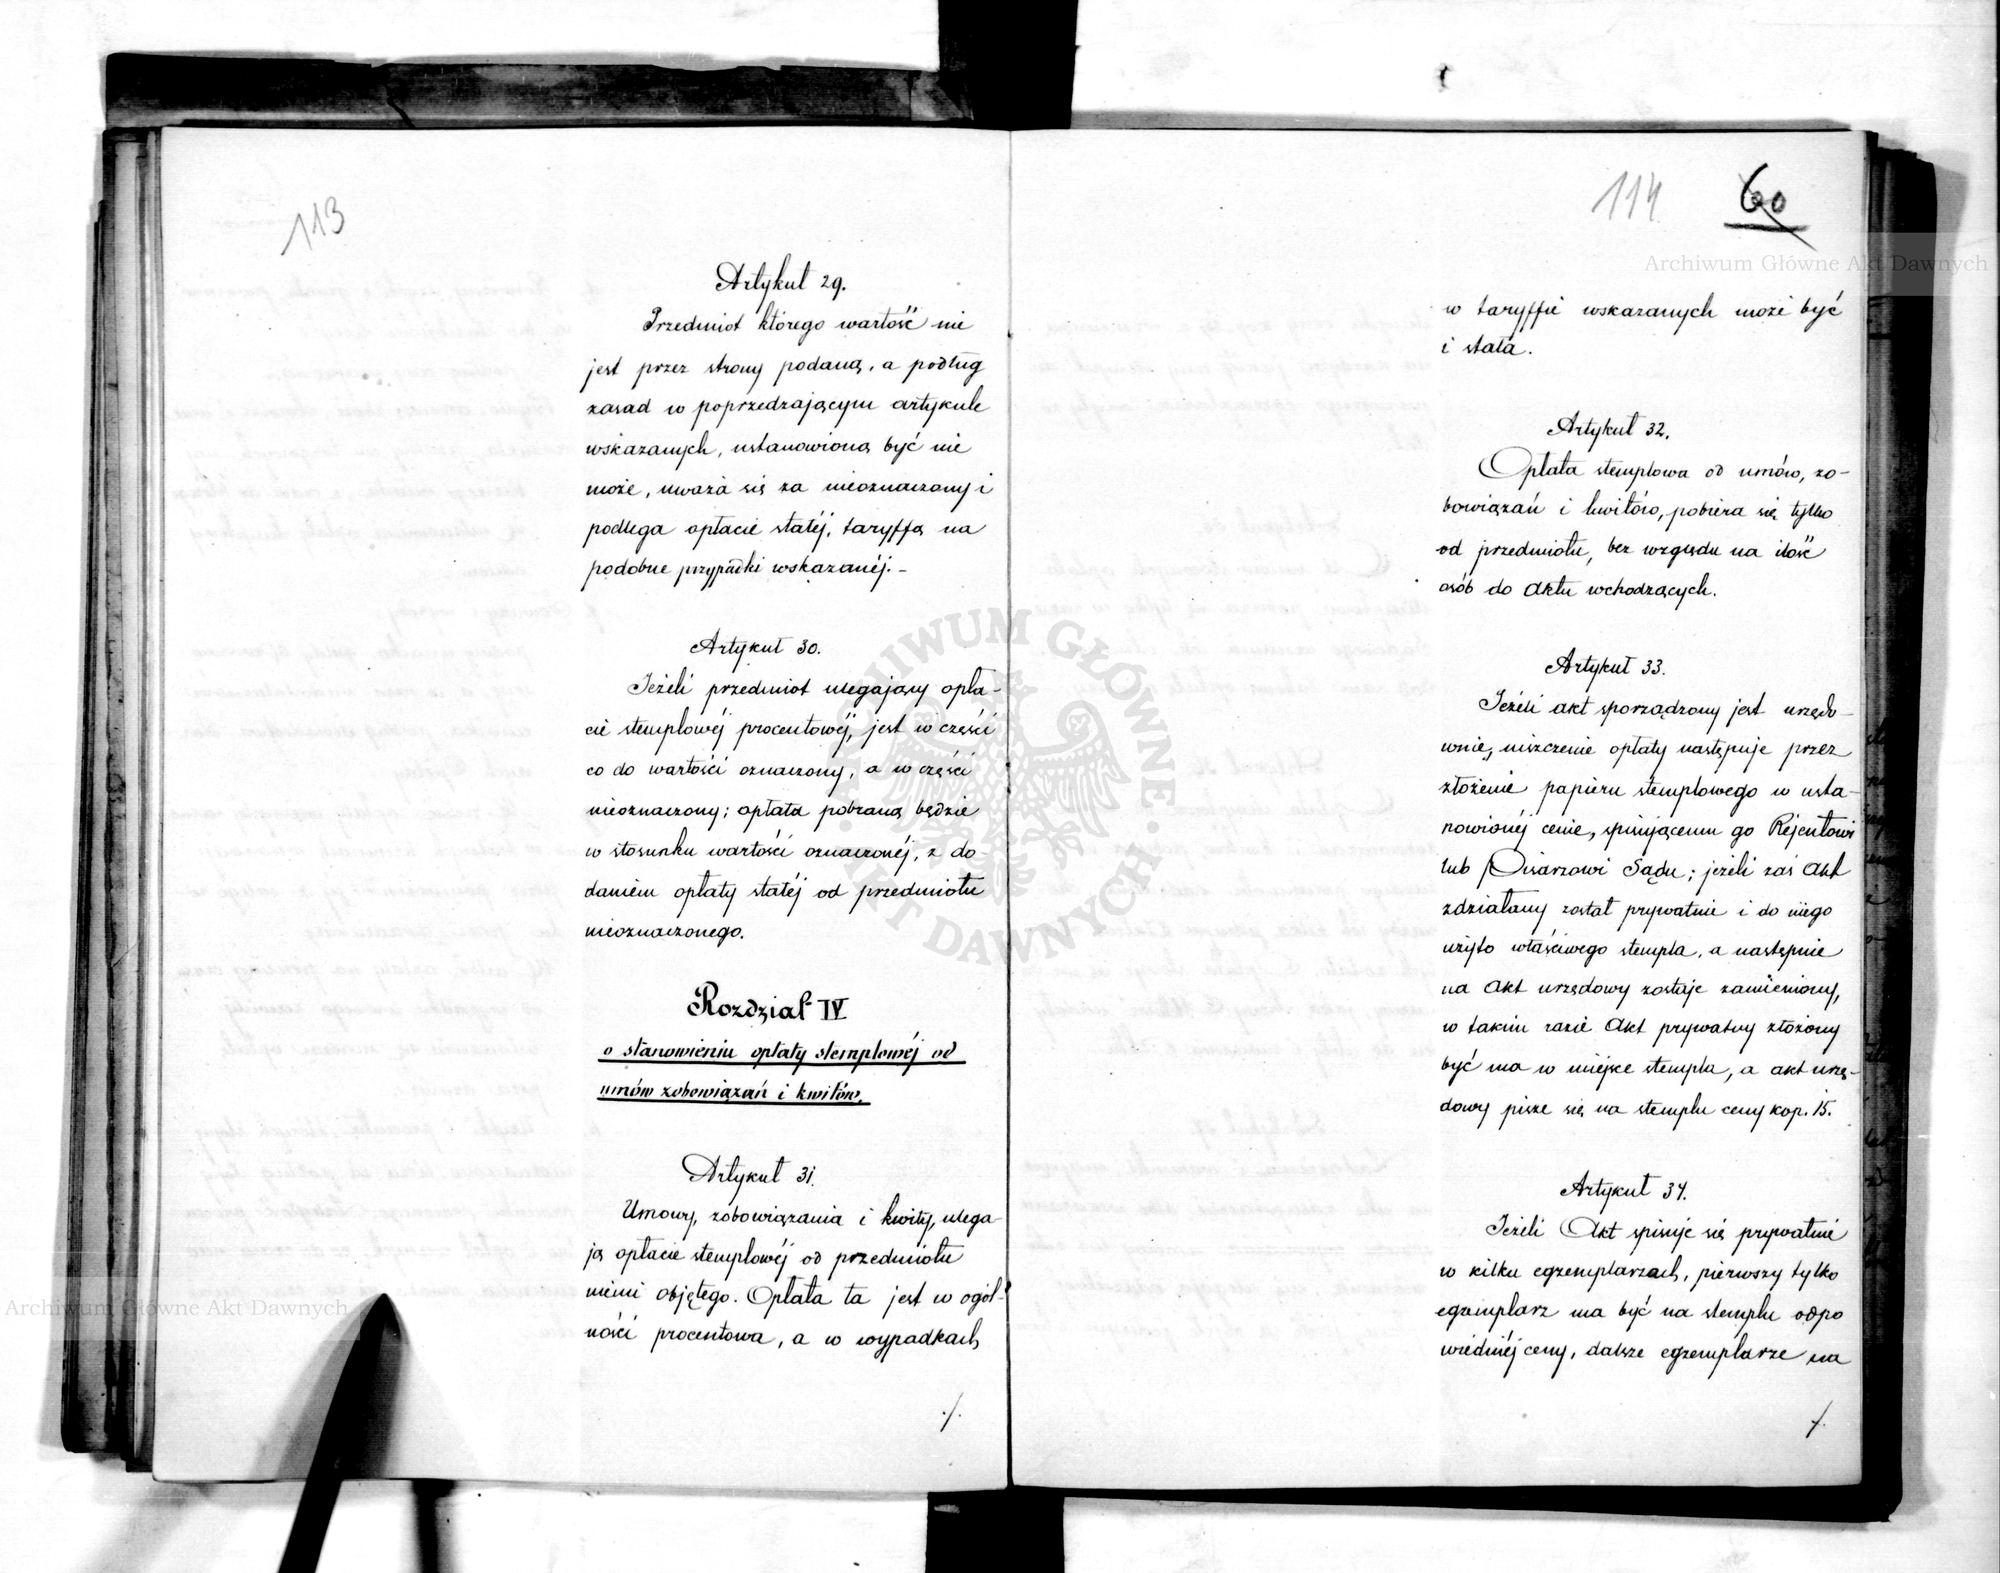 113
Artykuł 29.
Przedmiot którego wartość nie
jest przez strony podaną, a podług
zasad w poprzedzającym artykule
wskazanych, ustanowioną być nie
może, uważa się za nieoznaczony i
podlega opłacie stałéj, taryffą na
podobne przypadki wskazanéj.-
Artykuł 30.
Jeżeli przedmiot ulegający opła-
cie stemplowéj procentowéj, jest w części
co do wartości oznaczony, a w części
nieoznaczony; opłata pobraną będzie
w stosunku wartości oznaczonéj, z do-
daniem opłaty stałéj od przedmiotu
nieoznaczonego.
Rozdział IV
o stanowieniu opłaty stemplowéj od
umów zobowiązań i kwitów.
Artykuł 31.
Umowy, zobowiązania i kwity, ulega-
ją opłacie stemplowéj od przedmiotu
niemi objętego. Opłata ta jest w ogól-
ności procentowa, a w wypadkach
./.
114
60
w taryffie wskazanych może być
i stała.
Artykuł 32.
Opłata stemplowa od umów, zo-
bowiązań i kwitów, pobiera się tylko
od przedmiotu, bez względu na ilość
osób do aktu wchodzących.
Artykuł 33.
Jeżeli akt sporządzony jest urzędo-
wnie, uiszczenie opłaty następuje przez
złożenie papieru stemplowego w usta-
nowionéj cenie, spisującemu go Rejentowi
lub Pisarzowi Sądu; jeżeli zaś Akt
zdziałany został prywatnie i do niego
użyto właściwego stempla, a następnie
na Akt urzędowy zostaje zamieniony,
w takim razie Akt prywatny złożony
być ma w miejsce stempla, a akt urzę-
dowy pisze się na stemplu ceny kop. 15.
Artykuł 34.
Jeżeli Akt spisuje się prywatnie
w kilku egzemplarzach, pierwszy tylko
egzemplarz ma być na stemplu odpo
wiedniéj ceny, dalsze egzemplarze na
./.
Archiwum Główne Akt Dawnych
Archiwum Główne Akt Dawnych
ARCHIWUM GŁÓWNE · AKT DAWNYCH ·